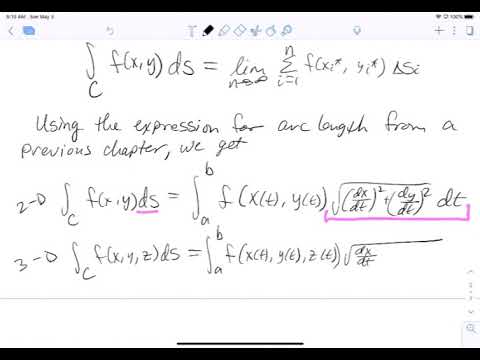 9:10 AM Sun May 3
100%
∫_C f(x,y) ds = lim_{n→∞} Σ_{i=1}^{n} f(x_i*, y_i*) Δs_i
Using the expression for arc length from a
previous chapter, we get
2-D ∫_C f(x,y) ds = ∫_a^b f(x(t), y(t)) √((dx/dt)² + (dy/dt)²) dt
3-D ∫_C f(x,y,z) ds = ∫_a^b f(x(t), y(t), z(t)) √(dx/dt